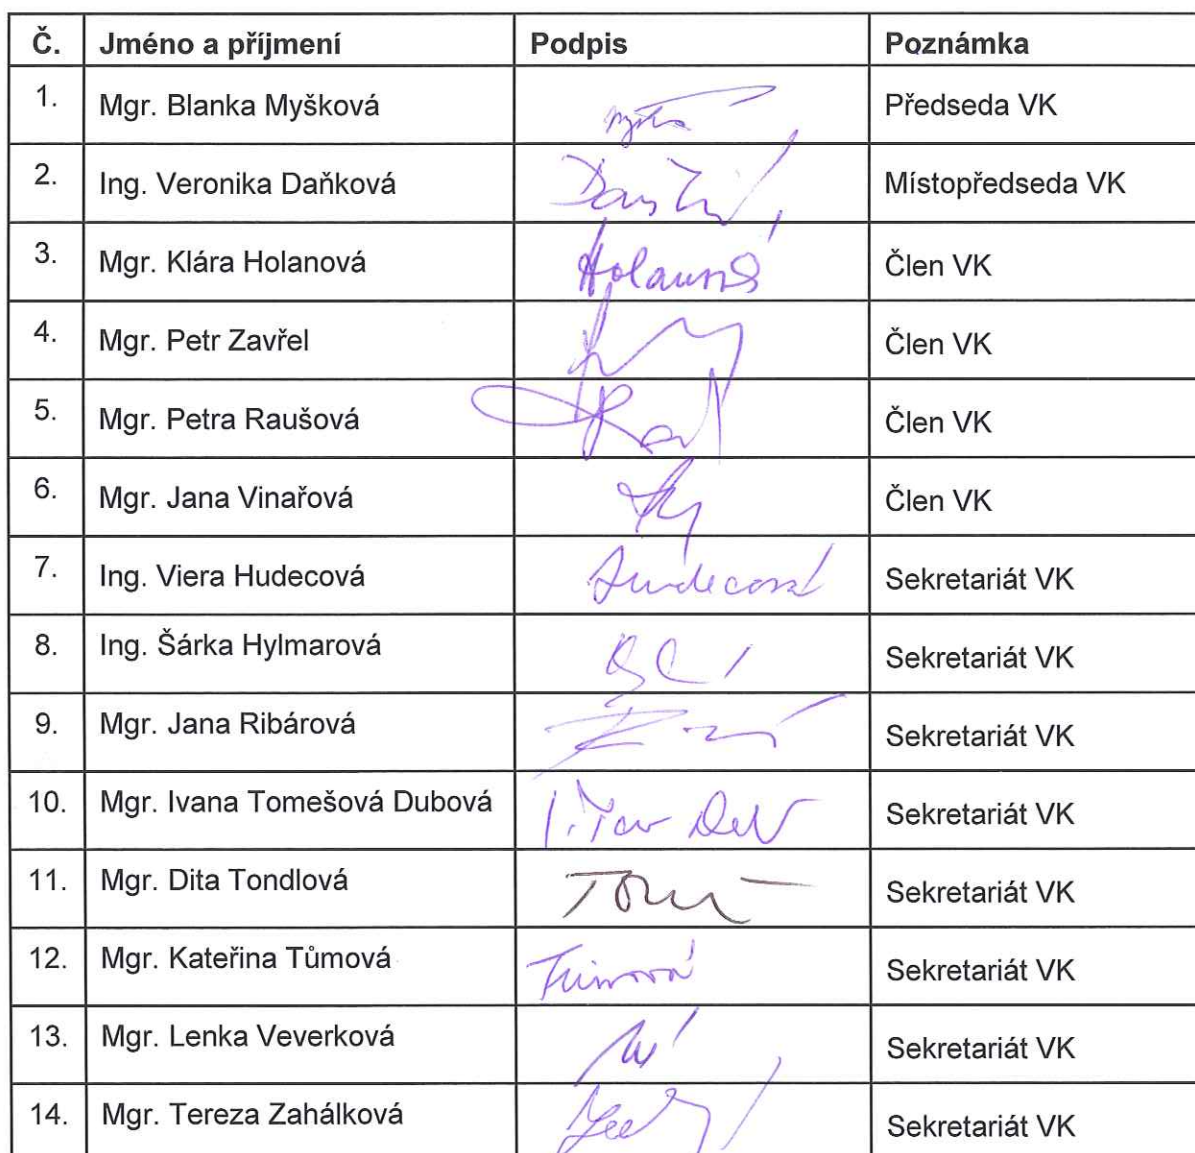 Č. Jméno a příjmení Podpis Poznámka
1. Mgr. Blanka Myšková Předseda VK
2. Ing. Veronika Daňková Místopředseda VK
3. Mgr. Klára Holanová Holanová Člen VK
4. Mgr. Petr Zavřel Člen VK
5. Mgr. Petra Raušová Člen VK
6. Mgr. Jana Vinařová Člen VK
7. Ing. Viera Hudecová Hudecová Sekretariát VK
8. Ing. Šárka Hylmarová Sekretariát VK
9. Mgr. Jana Ribárová Sekretariát VK
10. Mgr. Ivana Tomešová Dubová Sekretariát VK
11. Mgr. Dita Tondlová Sekretariát VK
12. Mgr. Kateřina Tůmová Tůmová Sekretariát VK
13. Mgr. Lenka Veverková Sekretariát VK
14. Mgr. Tereza Zahálková Sekretariát VK